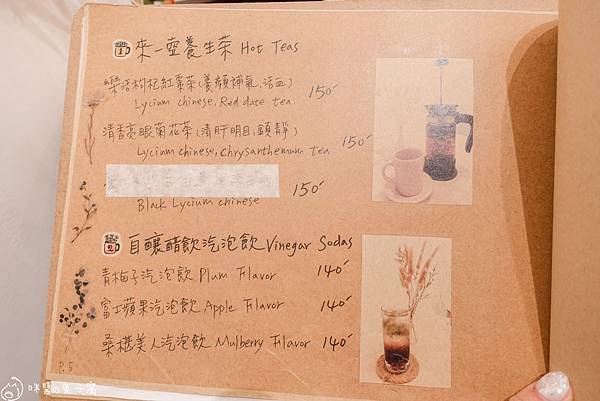 1 來一壺養生茶 Hot Teas
樂活枸杞紅棗茶(養顏補氣.活血) 150
Lycium chinese, Red date tea.
清香亮眼菊花茶(清肝明目,鎮靜) 150
Lycium chinese, chrysanthemum tea
150
Black Lycium chinese
2 自釀醋飲汽泡飲 Vinegar Sodas
青梅子汽泡飲 Plum Flavor 140
富士蘋果汽泡飲 Apple Flavor 140
桑椹美人汽泡飲 Mulberry Flavor 140
P.5